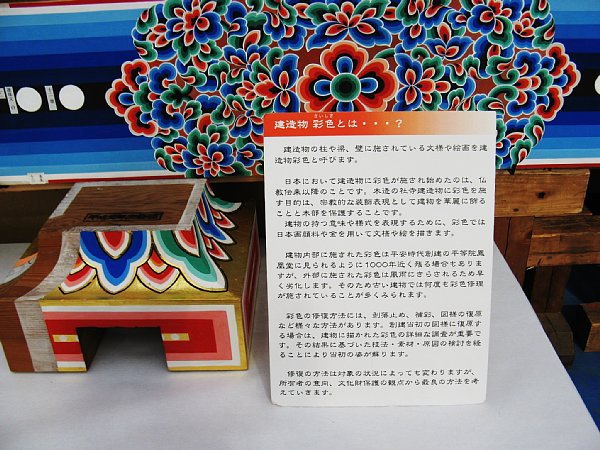 建造物 彩色とは・・・?
さいしき
建造物の柱や梁、壁に施されている文様や絵画を建
造物彩色と呼びます。
日本において建造物に彩色が施され始めたのは、仏
教伝来以降のことです。木造の社寺建造物に彩色を施
す目的は、宗教的な装飾表現として建物を華麗に飾る
ことと木部を保護することです。
建物の持つ意味や様式を表現するために、彩色では
日本画顔料や金を用いて文様や絵を描きます。
建物内部に施された彩色は平安時代創建の平等院鳳
凰堂に見られるように1000年近く残る場合もありま
すが、外部に施された彩色は風雨にさらされるため早
く劣化します。そのため古い建物では何度も彩色修理
が施されていることが多くみられます。
彩色の修復方法には、剥落止め、補彩、図様の復原
など様々な方法があります。創建当初の図様に復原す
る場合は、建物に描かれた彩色の詳細な調査が重要で
す。その結果に基づいた技法・素材・原因の検討を経
ることにより当初の姿が蘇ります。
修復の方法は対象の状況によっても変わりますが、
所有者の意向、文化財保護の観点から最良の方法を考
えていきます。